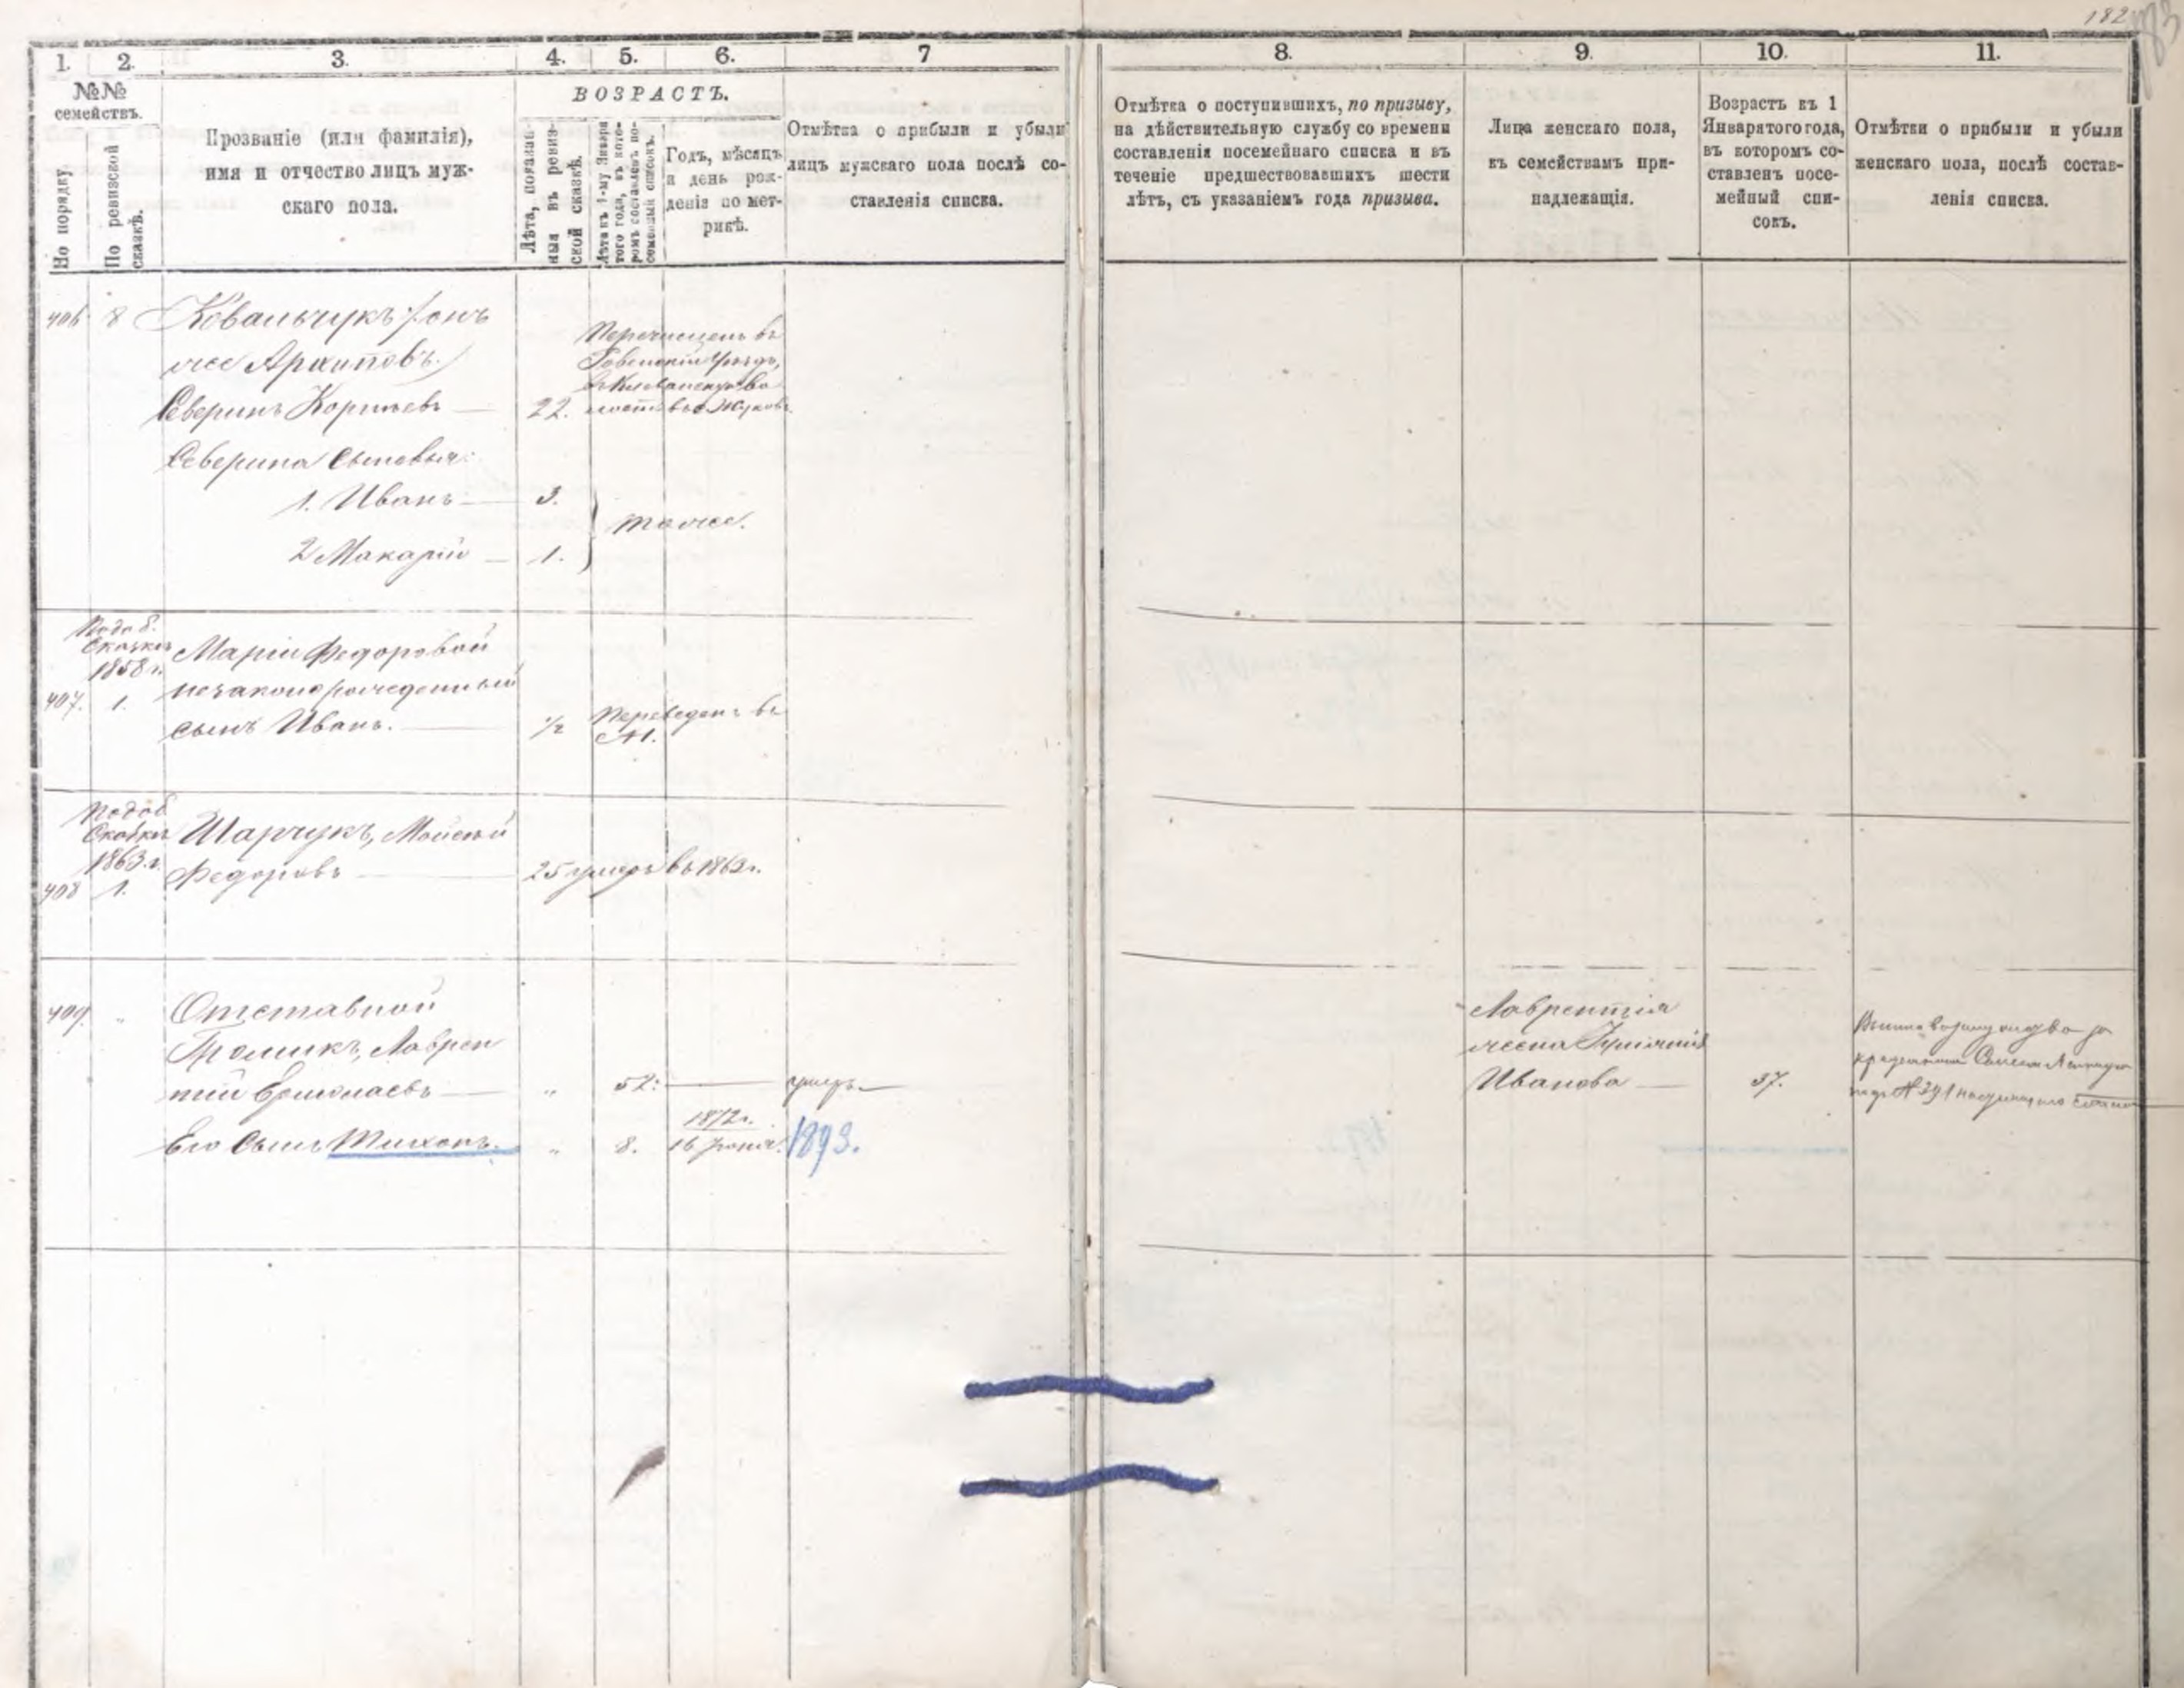 182
183
1. 2. 3. 4. 5. 6. 7 8. 9. 10. 11.
№№
семействъ.
По порядку.
По ревизской
сказкѣ.
Прозваніе (или фамилія),
имя и отчество лицъ муж-
скаго пола.
ВОЗРАСТЪ.
Лѣта, показан-
ныя въ ревиз-
ской сказкѣ.
Лѣта къ 1-му Января
того года, въ кото-
ромъ составленъ по-
семейный списокъ.
Годъ, мѣсяцъ
и день рож-
денія по мет-
рикѣ.
Отмѣтка о прибыли и убыли
лицъ мужскаго пола послѣ со-
ставленія списка.
Отмѣтка о поступившихъ, по призыву,
на дѣйствительную службу со времени
составленія посемейнаго списка и въ
теченіе предшествовавшихъ шести
лѣтъ, съ указаніемъ года призыва.
Лица женскаго пола,
къ семействамъ при-
надлежащія.
Возрастъ къ 1
Января того года,
въ которомъ со-
ставленъ посе-
мейный спи-
сокъ.
Отмѣтки о прибыли и убыли
женскаго пола, послѣ состав-
ленія списка.
406 8 Ковальчукъ /онъ
же Архиповъ/
Северинъ Корнѣевъ 22.
Перечисленъ въ
Ровенскій Уѣздъ,
Северина сыновья:
1. Иванъ 3.
2 Макарій 1.
тоже.
По доб.
Сказкѣ
1858 г.
407. 1.
Маріи Федоровой
незаконорожденный
сынъ Иванъ. 1/2 Переведенъ въ
№1.
По доб
Сказкѣ
1863 г.
408 1.
Шарчукъ, Моисей
Федоровъ 25 умеръ въ 1863г.
409. „ Отставной
Громикъ, Лаврен
тій Ермолаевъ „ 52: умеръ
Его Сынъ Тихонъ. „ 8. 1872г.
16 Іюня. 1893.
Лаврентія
жена
Иванова 37.